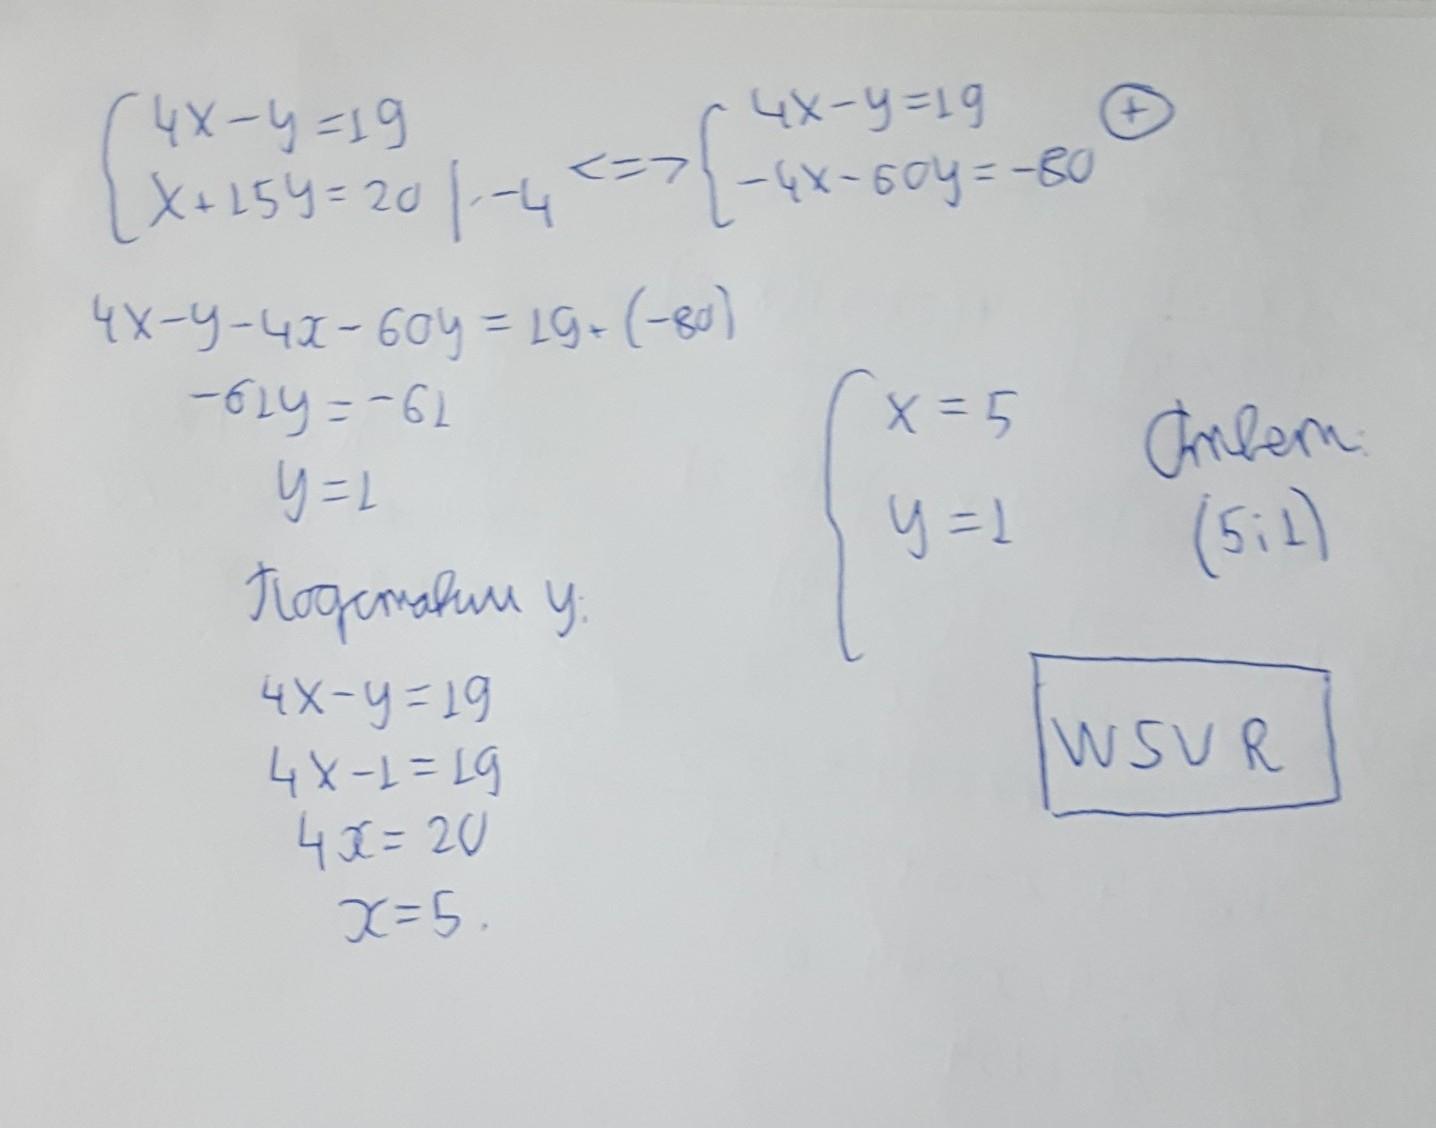 4x-y=19
x+15y=20 |·-4 <=> 4x-y=19 +
-4x-60y=-80
4x-y-4x-60y=19+(-80)
-61y=-61
y=1
Подставим y:
4x-y=19
4x-1=19
4x=20
x=5.
x=5
y=1
Ответ:
(5;1)
WSVR